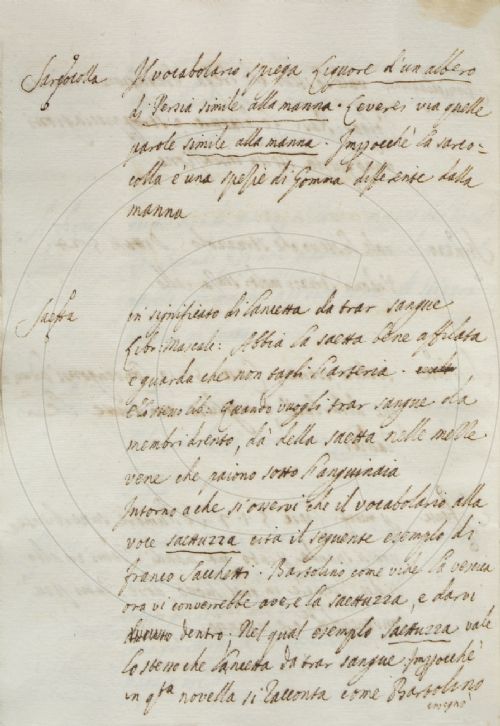 Sarcocolla
Il vocabolario spiega Liquore d'un albero
di Persia simile alla manna. Leverei via quelle
parole simile alla manna. Impocchè la sarco=
colla è una spesie di Gomma differente dalla
manna
Saetta
in significato di Lancetta da trar sangue
Libr: Mascalc: Abbia la saetta bene affilata
e guarda che non tagli l'arteria.
Quando vuogli trar sangue da
membri drento, dà della saetta nelle molle
vene che paiono sotto l'anguinaia
Intorno a che si osservi che il vocabolario alla
voce saettuzza cita il seguente esempio di
franco Sacchetti. Bartolino come vide la vescica
ora vi converrebbe avere la saettuzza, e darvi
dentro; Nel qual esempio saettuzza vale
lo stesso che Lancetta da trar sangue Impocchè
in qta novella si racconta come Bartolino